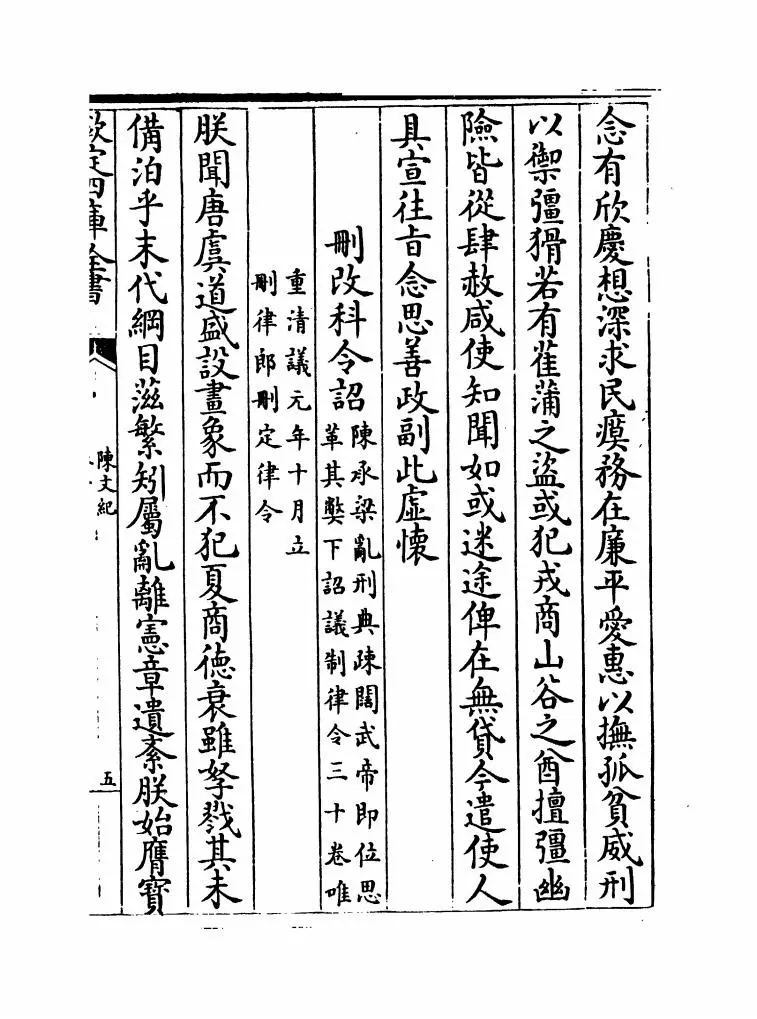 念有欣慶想深求民瘼務在廉平愛惠以撫孤貧威刑
以禦彊猾若有萑蒲之盜或犯戎商山谷之酋擅彊幽
險皆從肆赦咸使知聞如或迷途俾在無貸今遣使人
具宣往旨念思善政副此虛懷
刪改科令詔
陳承梁亂刑典疎闊武帝即位思
革其弊下詔議制律令三十卷唯
重清議元年十月立
刪律郎刪定律令
朕聞唐虞道盛設畫象而不犯夏商德衰雖孥戮其未
備洎乎末代綱目滋繁矧屬亂離憲章遺紊朕始膺寶
欽定四庫全書
陳文紀
五